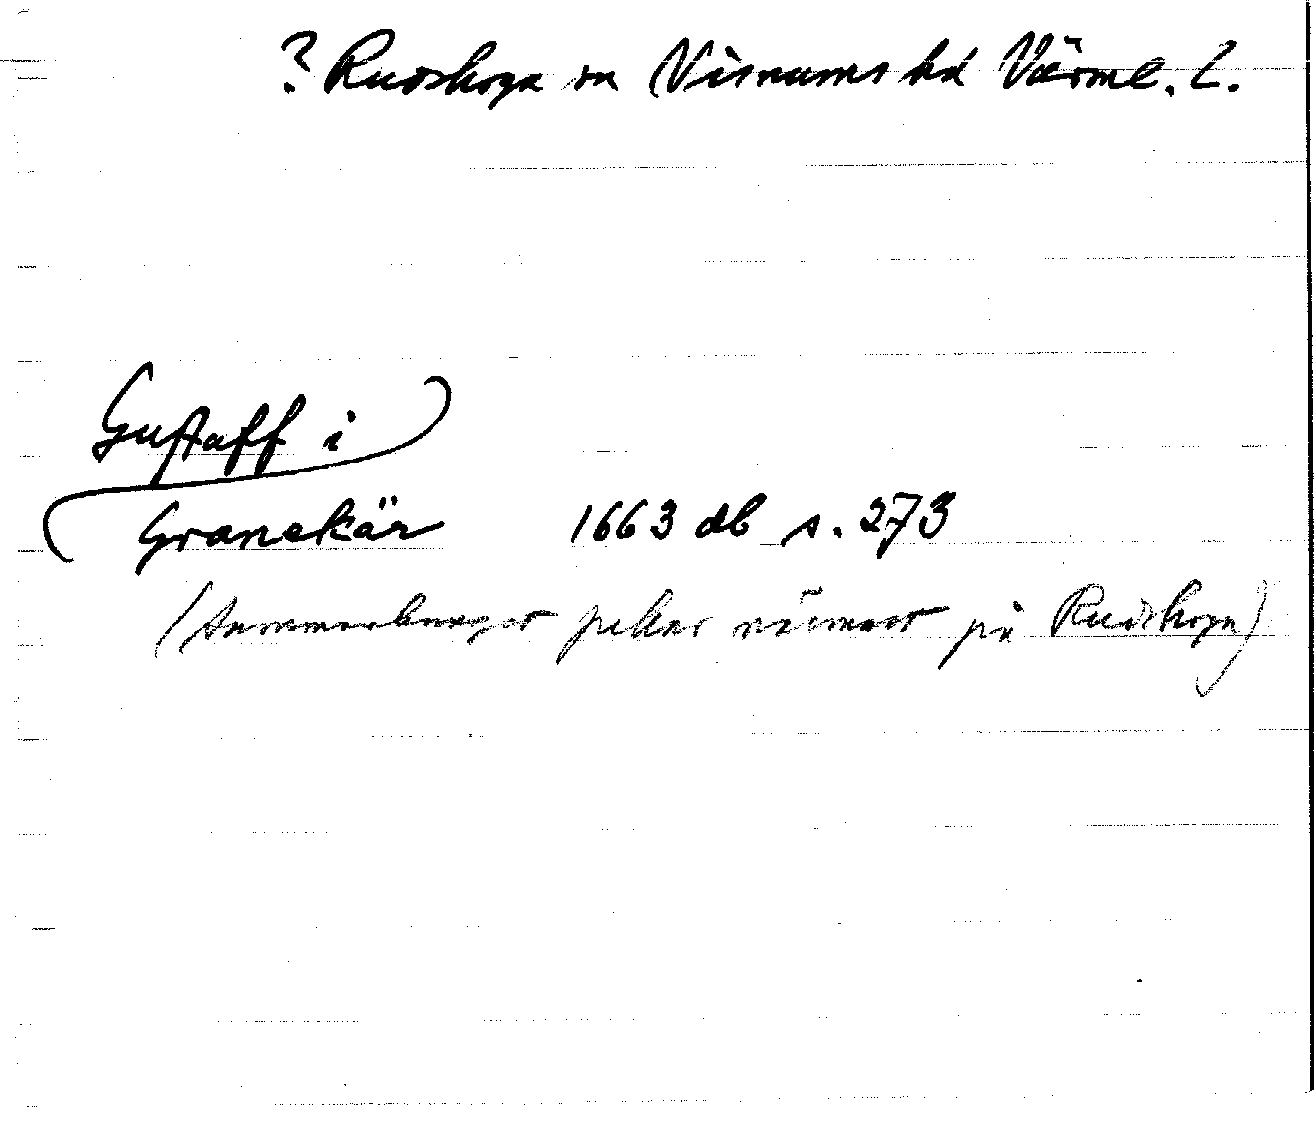 ? Rudskoga sn Visnums hd Värml. l.
Gustaff i
Granekär 1663 db s. 273
(Sammanhanget pekar närmast på Rudskoga)